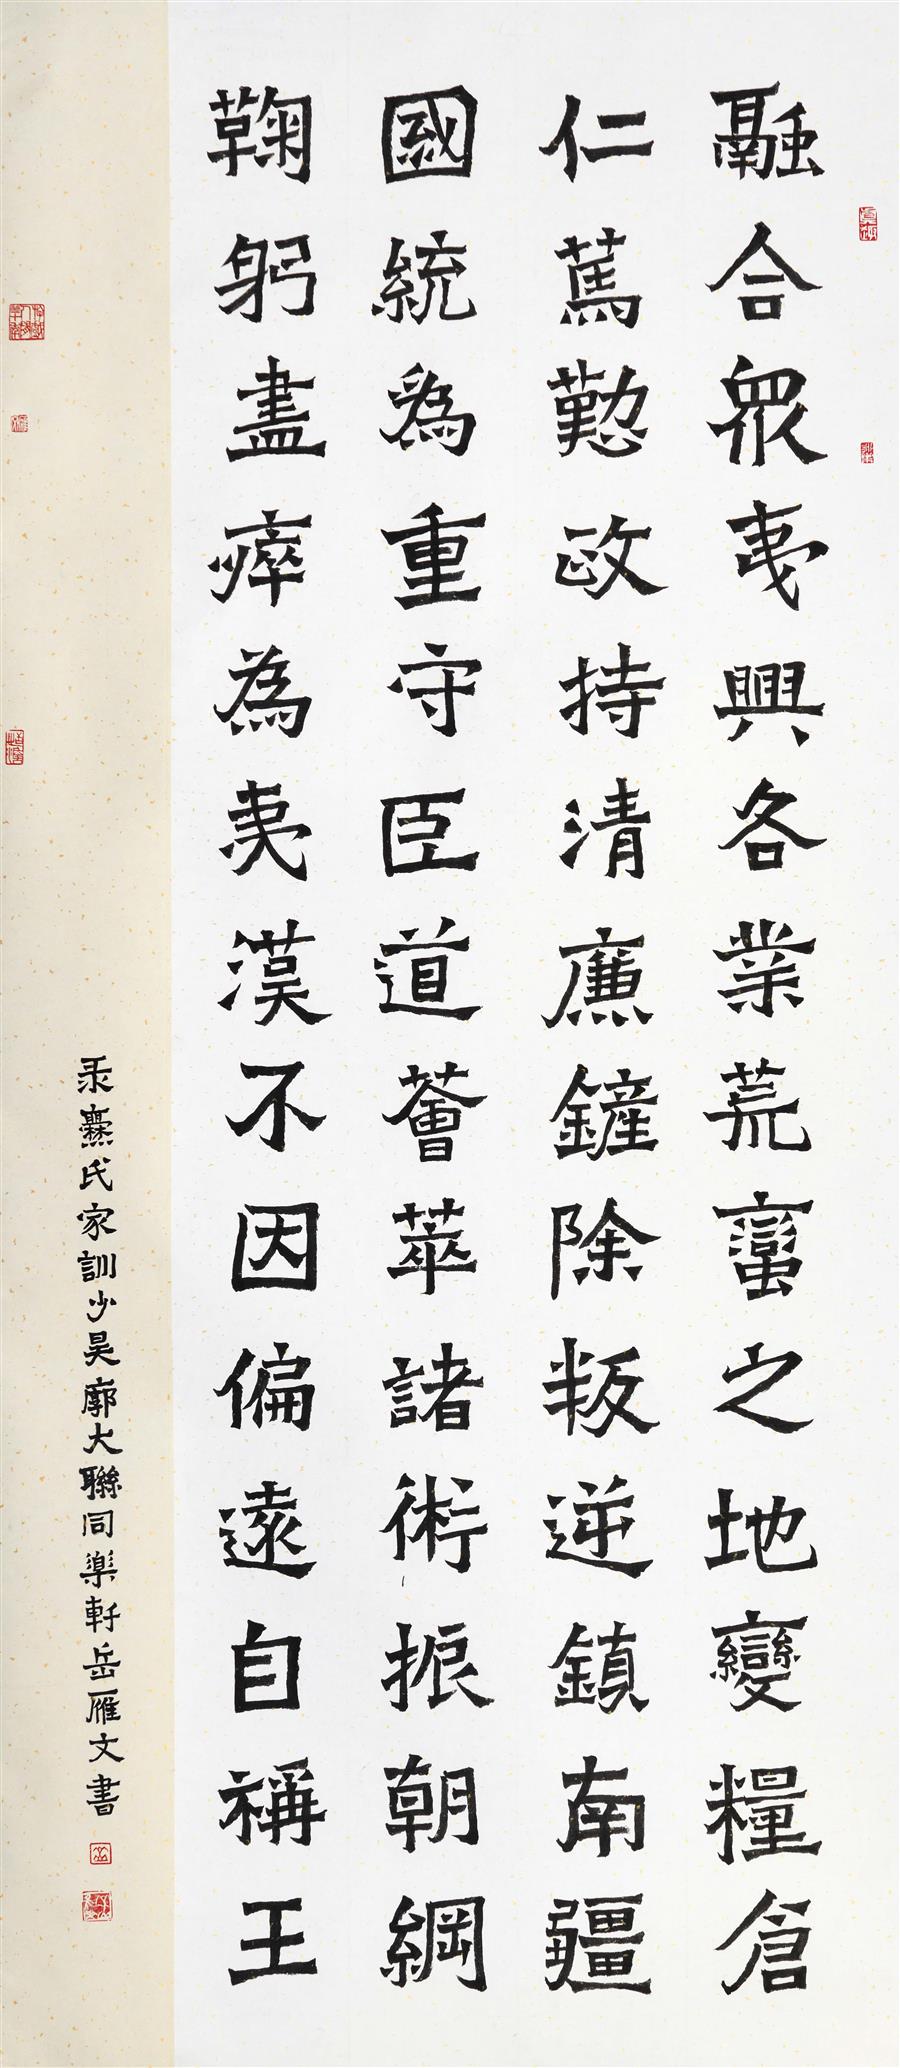 融合眾夷興各業荒蠻之地變糧倉
仁篤勤政持清廉鏟除叛逆鎮南疆
國統為重守臣道薈萃諸術振朝綱
鞠躬盡瘁為夷漢不因偏遠自稱王
彔爨氏家訓少昊廓大聯同樂軒岳雁文書